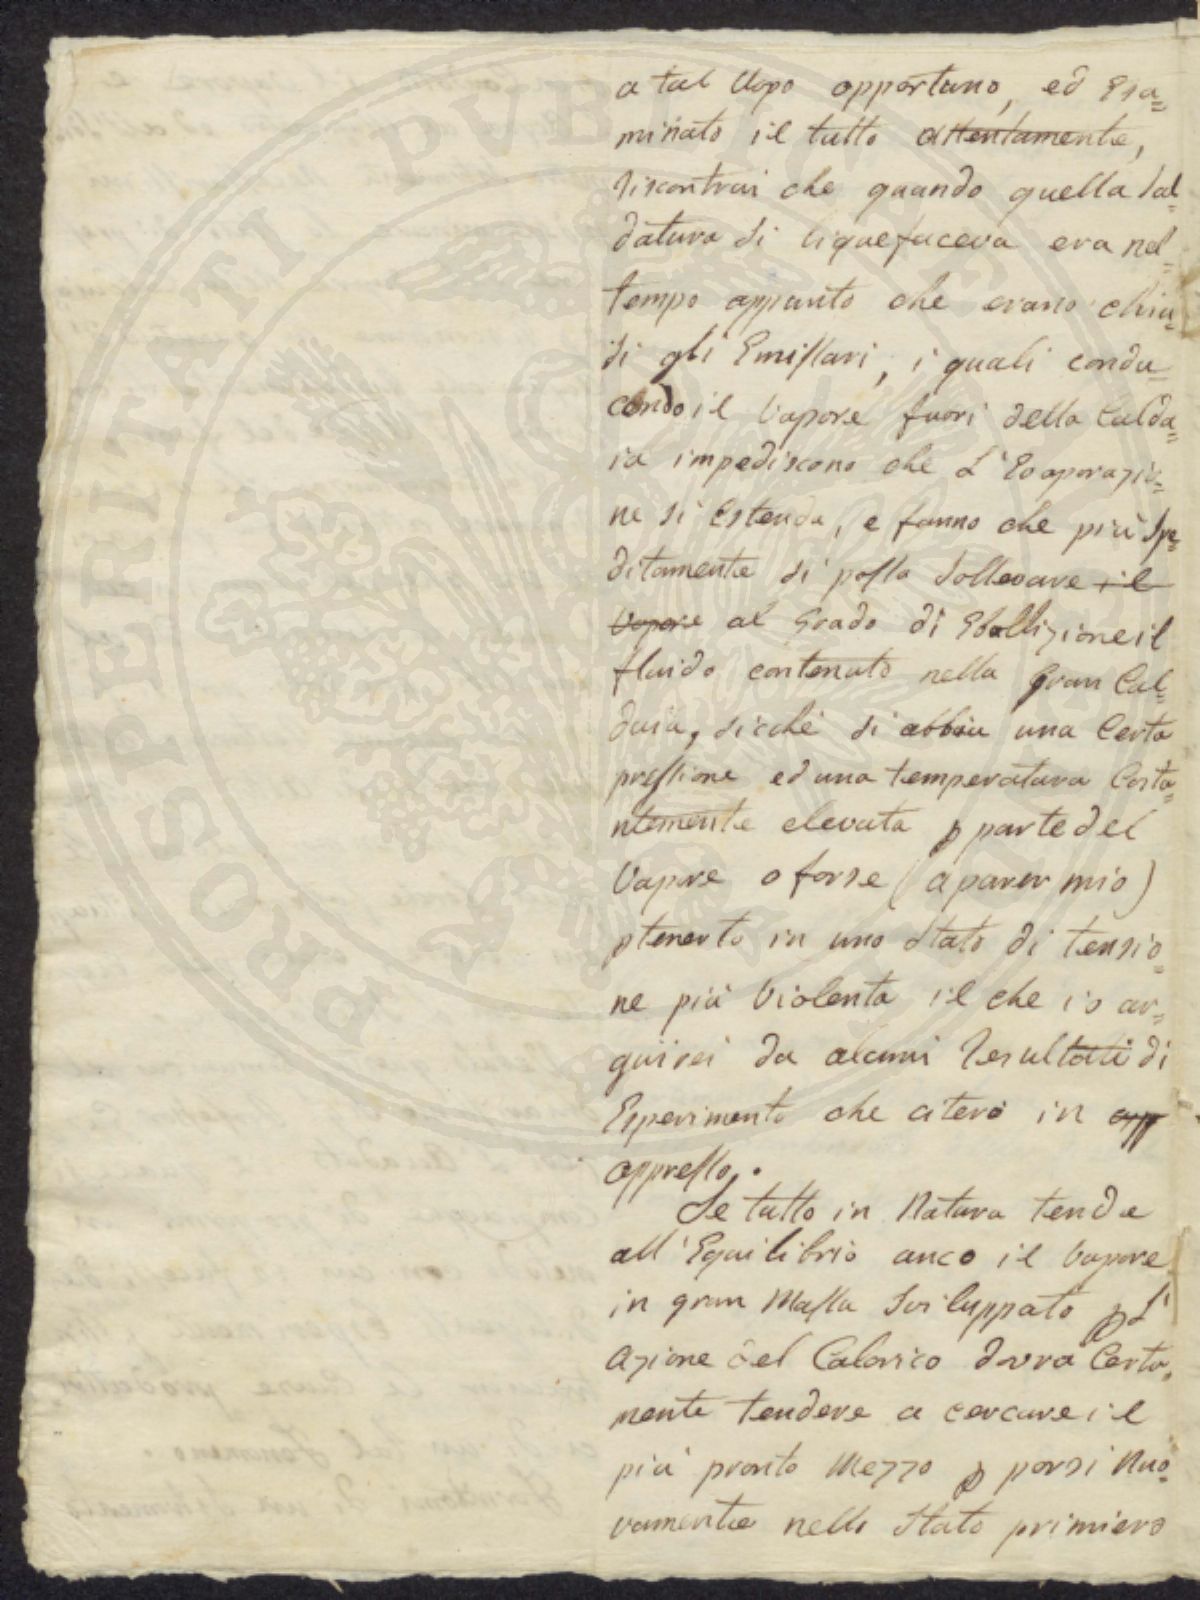 a tal Uopo opportuno, ed Esa=
minato il tutto attentamente,
riscontrai che quando quella Sal=
datura si liquefaceva era nel=
tempo appunto che erano chiu=
si gli Emissari, i quali condu=
cendo il Vapore fuori della Calda=
ia impediscono che L'Evaporazio=
ne si estenda, e fanno che più Spe=
ditamente si possa Sollevare il
Vapore al Grado di Ebollizione il
fluido contenuto nella Gran Cal=
daia, sicchè si abbia una Certa
pressione ed una temperatura Costa=
ntemente elevata p parte del
Vapore o forse (a parer mio)
p tenerlo in uno Stato di tensio=
ne più Violenta il che io ar=
guirei da alcuni Resultati di
Esperimento che citerò in app
appresso.
Se tutto in Natura tende
all'Equilibrio anco il Vapore
in gran Massa Sviluppato p L'
Azione del Calorico dovrà Certa=
mente tendere a cercare il
più pronto Mezzo p porsi Nuo=
vamente nello Stato primiero
PROSPERITATI PUBLICAE